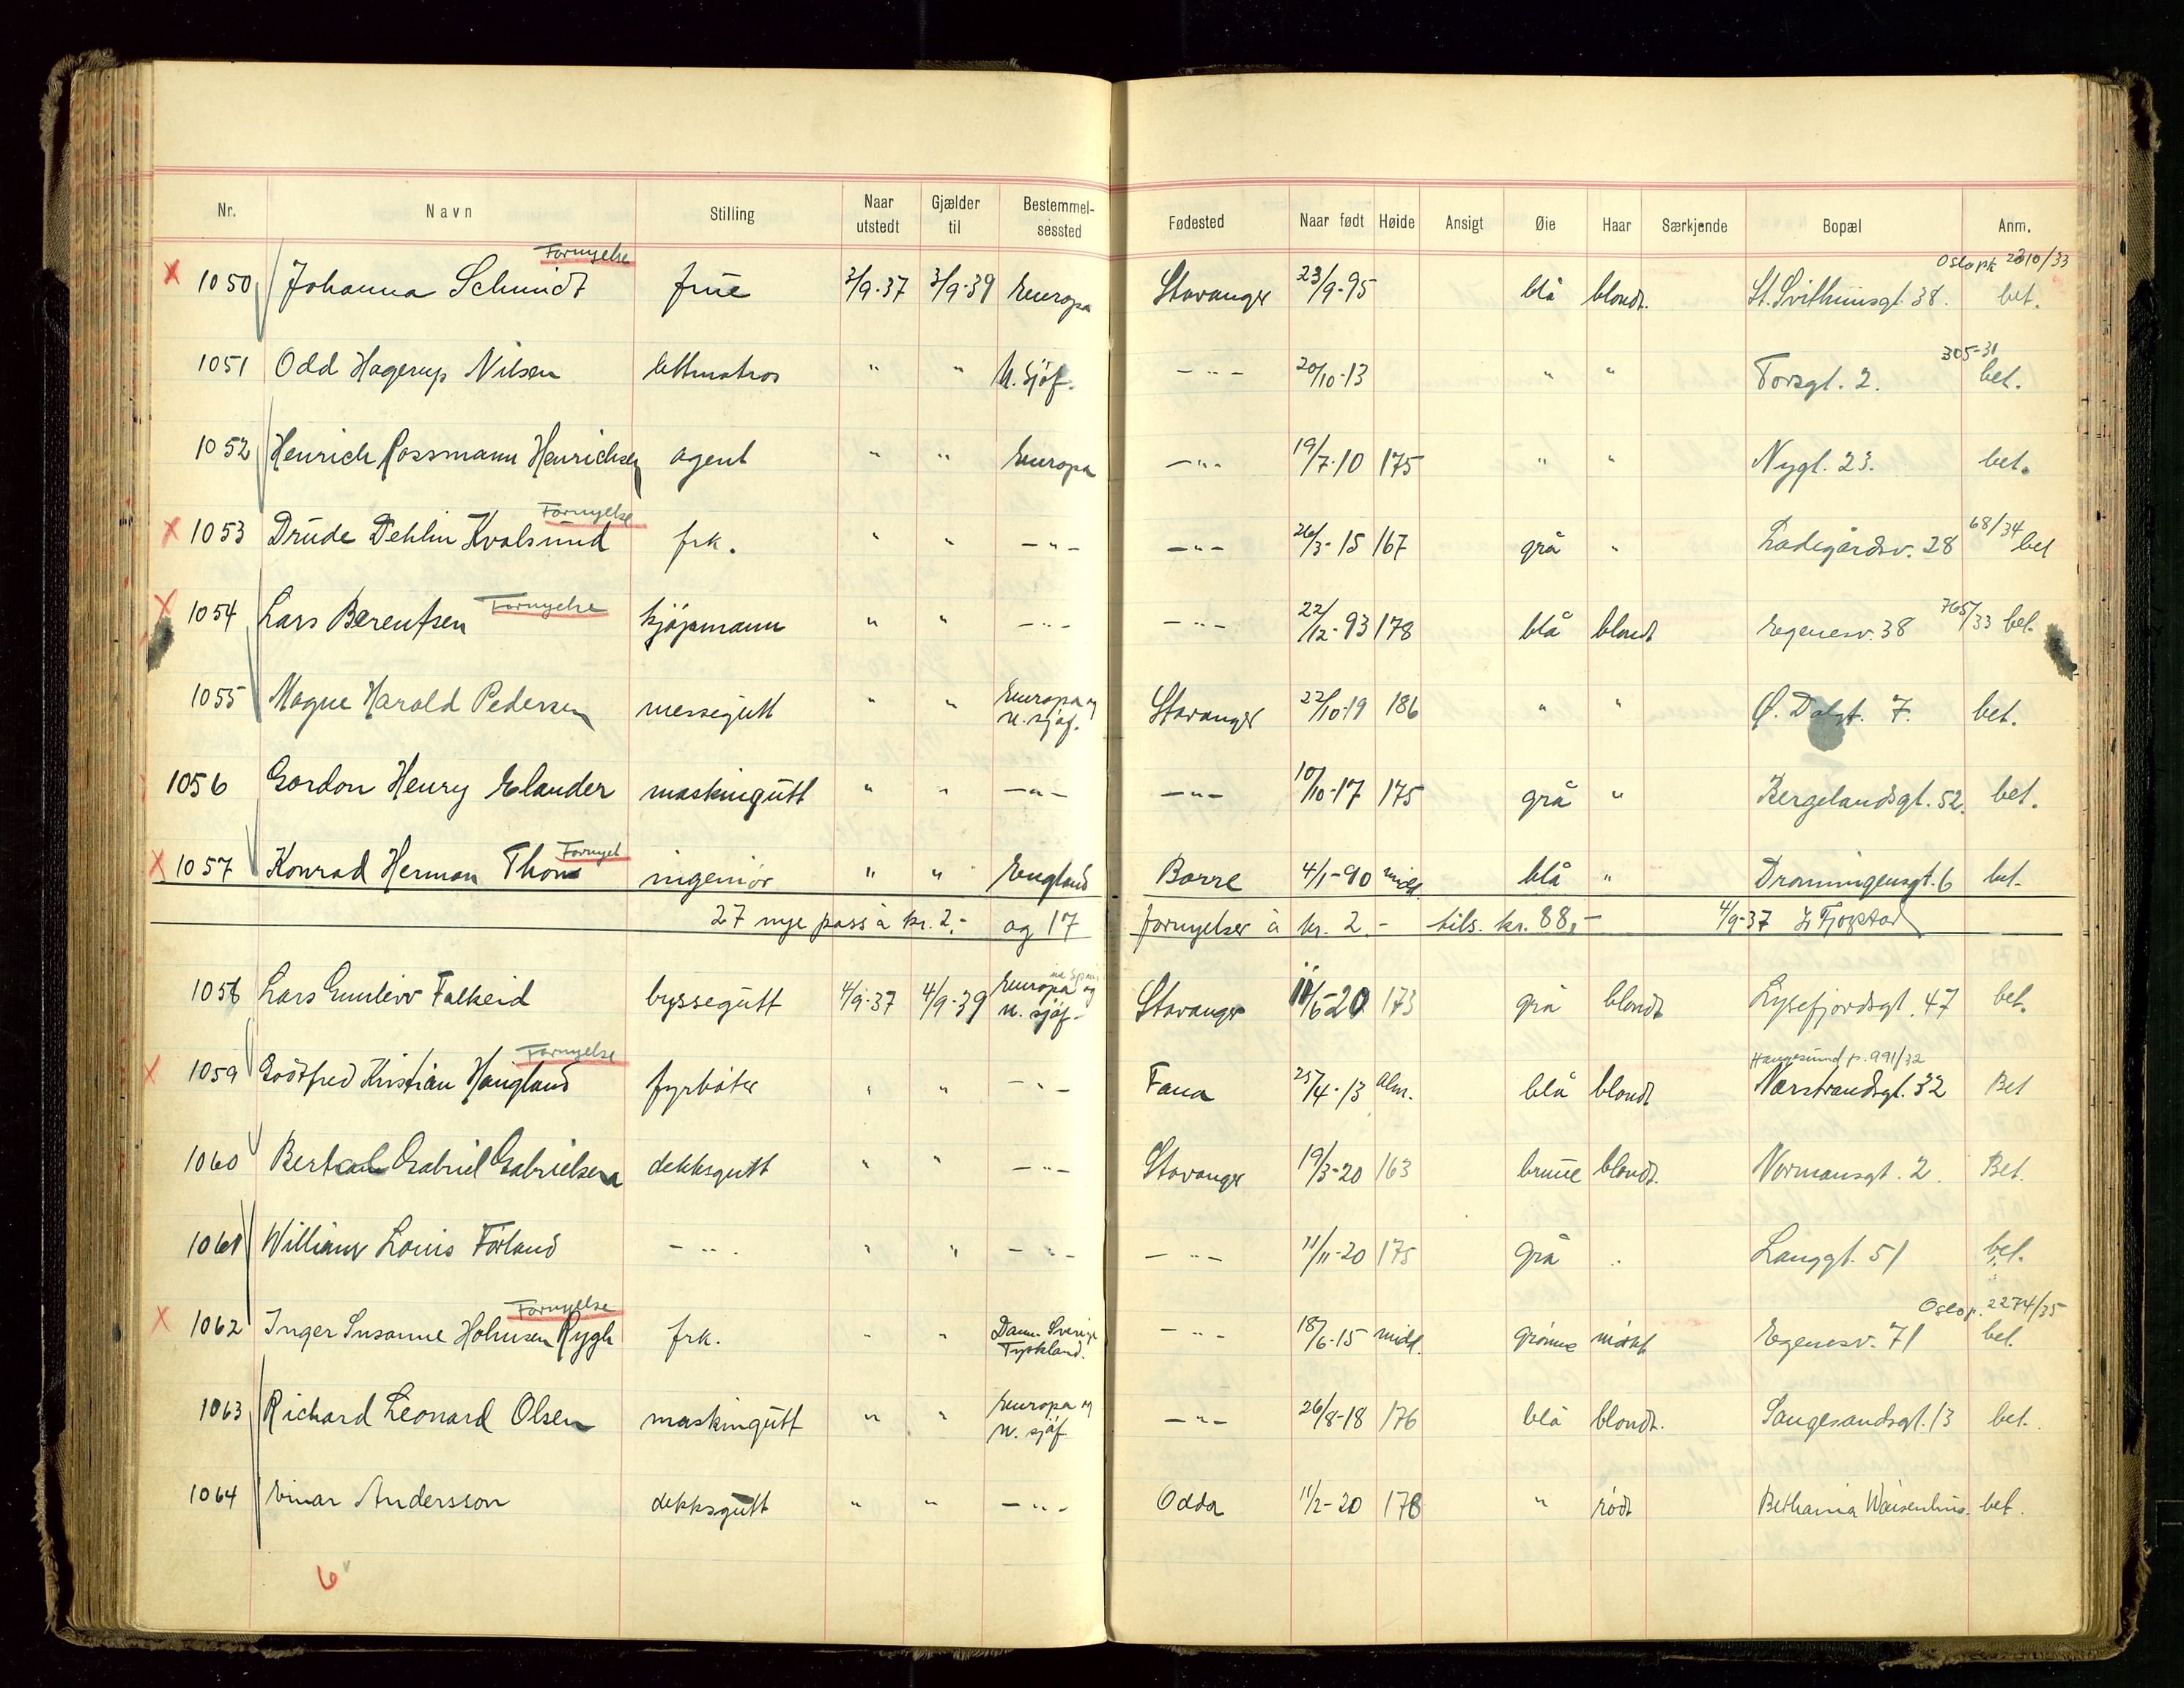 Nr. Navn Stilling Naar utstedt Gjælder til Bestemmelsessted Fødested Naar født Høide Ansigt Øie Haar Særkjende Bopæl Anm.
Fornyelse Oslopk 2010/33
x 1050 Johanna Schmidt frue 3/9-37 3/9-39 Europa Stavanger 23/9-95 blå blondt. St. Svithunsgt. 38. bet.
305-31
1051 Odd Hagerup Nilsen lettmatros " " U. Sjöf. -"- 20/10-13 " " Torsgt. 2. bet.
1052 Henrich Rossmann Henrichsen agent " " Europa -"- 19/7-10 175 " " Nygt. 23. bet.
Fornyelse
x 1053 Drude Dehlin Kvalsund frk. " " -"- -"- 26/3-15 167 grå " Ladegårdsv. 28 68/34 bet
x 1054 Lars Berentsen Fornyelse kjöpmann " " -"- -"- 22/12-93 178 blå blondt Egenesv. 38 765/33 bet.
1055 Magne Harald Pedersen messegutt " " Europa og u. sjöf. Stavanger 22/10-19 186 " " Ø. Dalgt. 7. bet.
1056 Gordon Henry Elander maskingutt " " -"- -"- 10/10-17 175 grå " Bergelandsgt. 52. bet.
x 1057 Konrad Herman Thom Fornyel ingeniör " " England Borre 4/1-90 midd. blå " Dronningensgt. 6 bet.
27 nye pass à kr. 2,- og 17 fornyelser à kr. 2.- tils. kr. 88,- 4/9-37
1058 Lars Gunleiv Falkeid byssegutt 4/9-37 4/9-39 Europa og u. sjöf. Stavanger 11/5-20 173 grå blondt Lysefjordsgt. 47 bet.
Fornyelse Haugesund p. 991/32
x 1059 Godtfred Kristian Haugland fyrböter " " -"- Fana 25/4-13 alm. blå blondt Nærstrandsgt. 32 Bet
1060 Gabriel Gabrielsen dekksgutt " " -"- Stavanger 19/3-20 163 brune blondt. Normansgt. 2. Bet.
1061 William Louis Förland -"- " " -"- -"- 11/11-20 175 grå " Langgt. 51 bet.
Fornyelse Oslo p. 2274/35
x 1062 Inger Susanne Holmsen Rygh frk. " " Danm. Sverige Tyskland. -"- 18/6-15 midd. grönne mörkt Egenesv. 71 bet.
1063 Richard Leonard Olsen maskingutt " " Europa og u. sjöf -"- 26/8-18 176 blå blondt. Saugesandsgt. 13 bet.
1064 Einar Andersson dekksgutt " " -"- Odda 11/2-20 178 " rödt Bethania Waisenhus. bet.
6